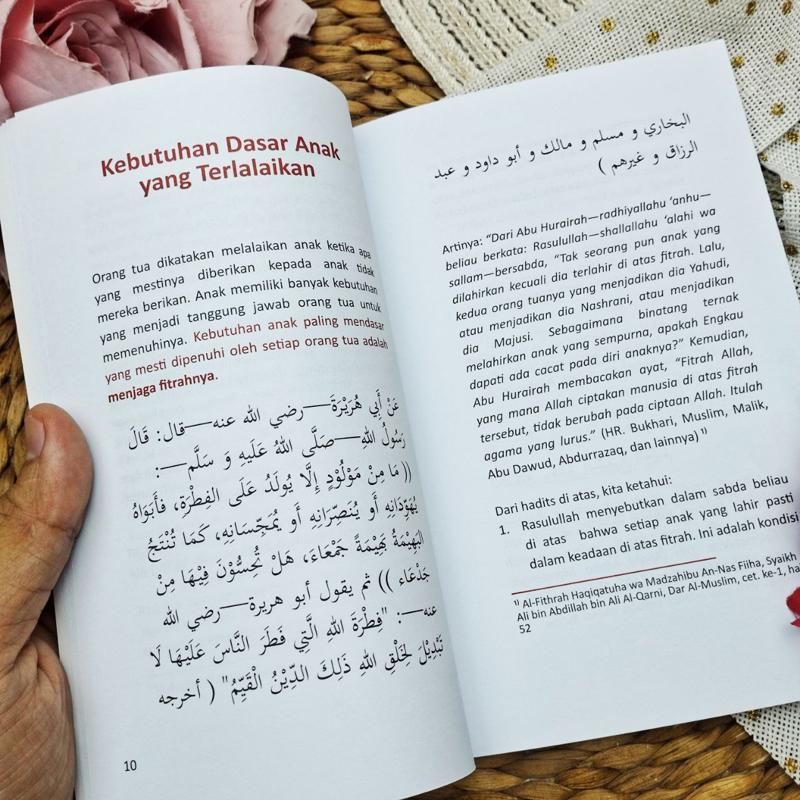 Kebutuhan Dasar Anak
yang Terlalaikan
Orang tua dikatakan melalaikan anak ketika apa
yang mestinya diberikan kepada anak tidak
mereka berikan. Anak memiliki banyak kebutuhan
yang menjadi tanggung jawab orang tua untuk
memenuhinya. Kebutuhan anak paling mendasar
yang mesti dipenuhi oleh setiap orang tua adalah
menjaga fitrahnya.
عَنْ أَبِي هُرَيْرَةَ—رضي الله عنه—قال: قَالَ
رَسُولُ اللهِ—صَلَّى اللهُ عَلَيْهِ وَ سَلَّم—:
(( مَا مِنْ مَوْلُودٍ إِلَّا يُولَدُ عَلَى الفِطْرَةِ، فَأَبَوَاهُ
يُهَوِّدَانِهِ أَو يُنَصِّرَانِهِ أَو يُمَجِّسَانِهِ، كَمَا تُنْتَجُ
البَهِيْمَةُ بَهِيْمَةً جَمْعَاءَ، هَلْ تُحِسُّوْنَ فِيْهَا مِنْ
جَدْعَاءَ )) ثم يقول أبو هريرة—رضي الله
عنه—: "فِطْرَةَ اللهِ الَّتِي فَطَرَ النَّاسَ عَلَيْهَا لَا
تَبْدِيْلَ لِخَلْقِ اللهِ ذَلِكَ الدِّيْنُ الْقَيِّمُ" ( أخرجه
10
البخاري و مسلم و مالك و أبو داود و عبد
الرزاق و غيرهم )
Artinya: “Dari Abu Hurairah—radhiyallahu ‘anhu—
beliau berkata: Rasulullah—shallallahu ‘alahi wa
sallam—bersabda, “Tak seorang pun anak yang
dilahirkan kecuali dia terlahir di atas fitrah. Lalu,
kedua orang tuanya yang menjadikan dia Yahudi,
atau menjadikan dia Nashrani, atau menjadikan
dia Majusi. Sebagaimana binatang ternak
melahirkan anak yang sempurna, apakah Engkau
dapati ada cacat pada diri anaknya?” Kemudian,
Abu Hurairah membacakan ayat, “Fitrah Allah,
yang mana Allah ciptakan manusia di atas fitrah
tersebut, tidak berubah pada ciptaan Allah. Itulah
agama yang lurus.” (HR. Bukhari, Muslim, Malik,
Abu Dawud, Abdurrazaq, dan lainnya) ¹⁾
Dari hadits di atas, kita ketahui:
1. Rasulullah menyebutkan dalam sabda beliau
di atas bahwa setiap anak yang lahir pasti
dalam keadaan di atas fitrah. Ini adalah kondisi
¹⁾ Al-Fithrah Haqiqatuha wa Madzahibu An-Nas Fiiha, Syaikh
Ali bin Abdillah bin Ali Al-Qarni, Dar Al-Muslim, cet. ke-1, ha
52